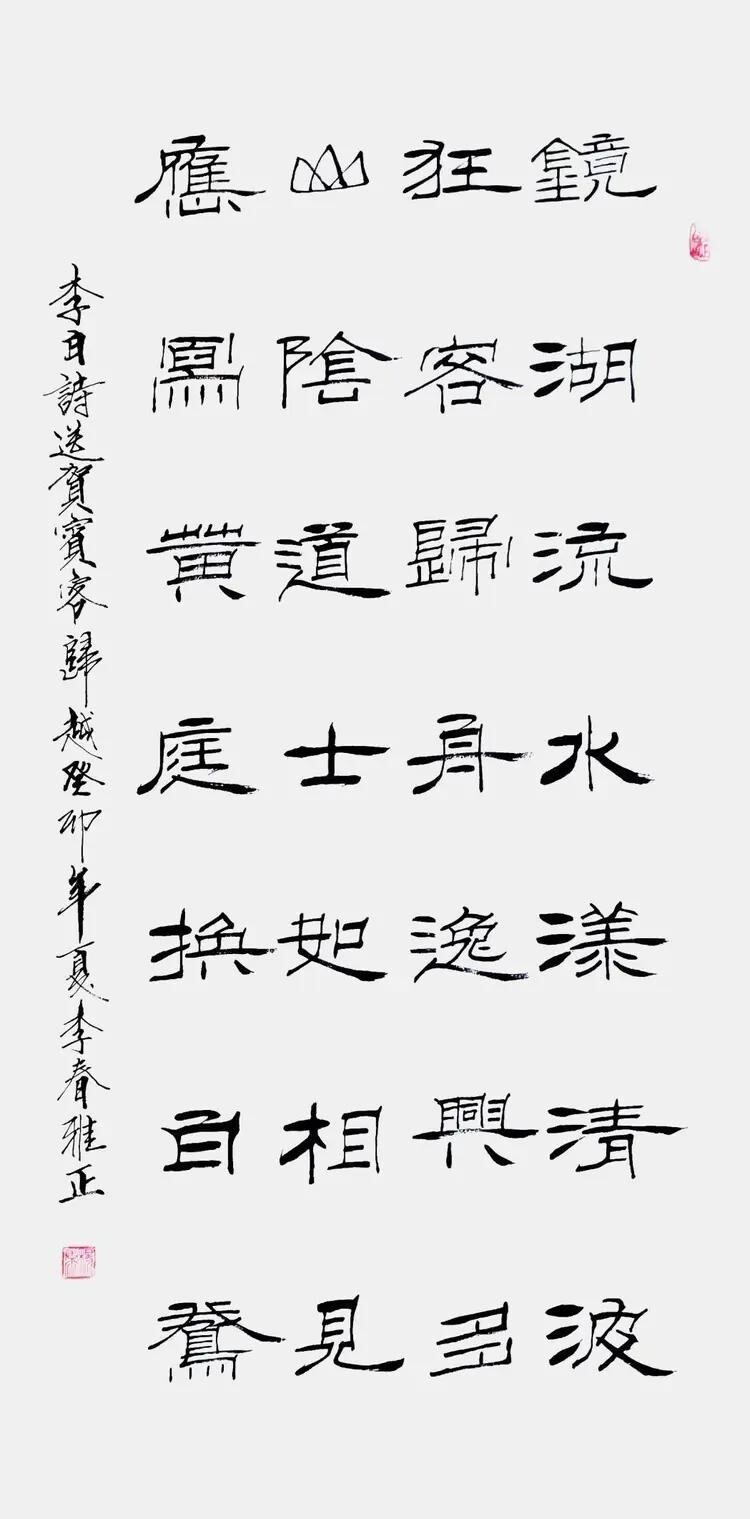 鏡湖流水漾清波
狂客歸舟逸興多
山陰道士如相見
應寫黃庭換白鵞
李白詩送賀賓客歸越癸卯年夏李春雅正